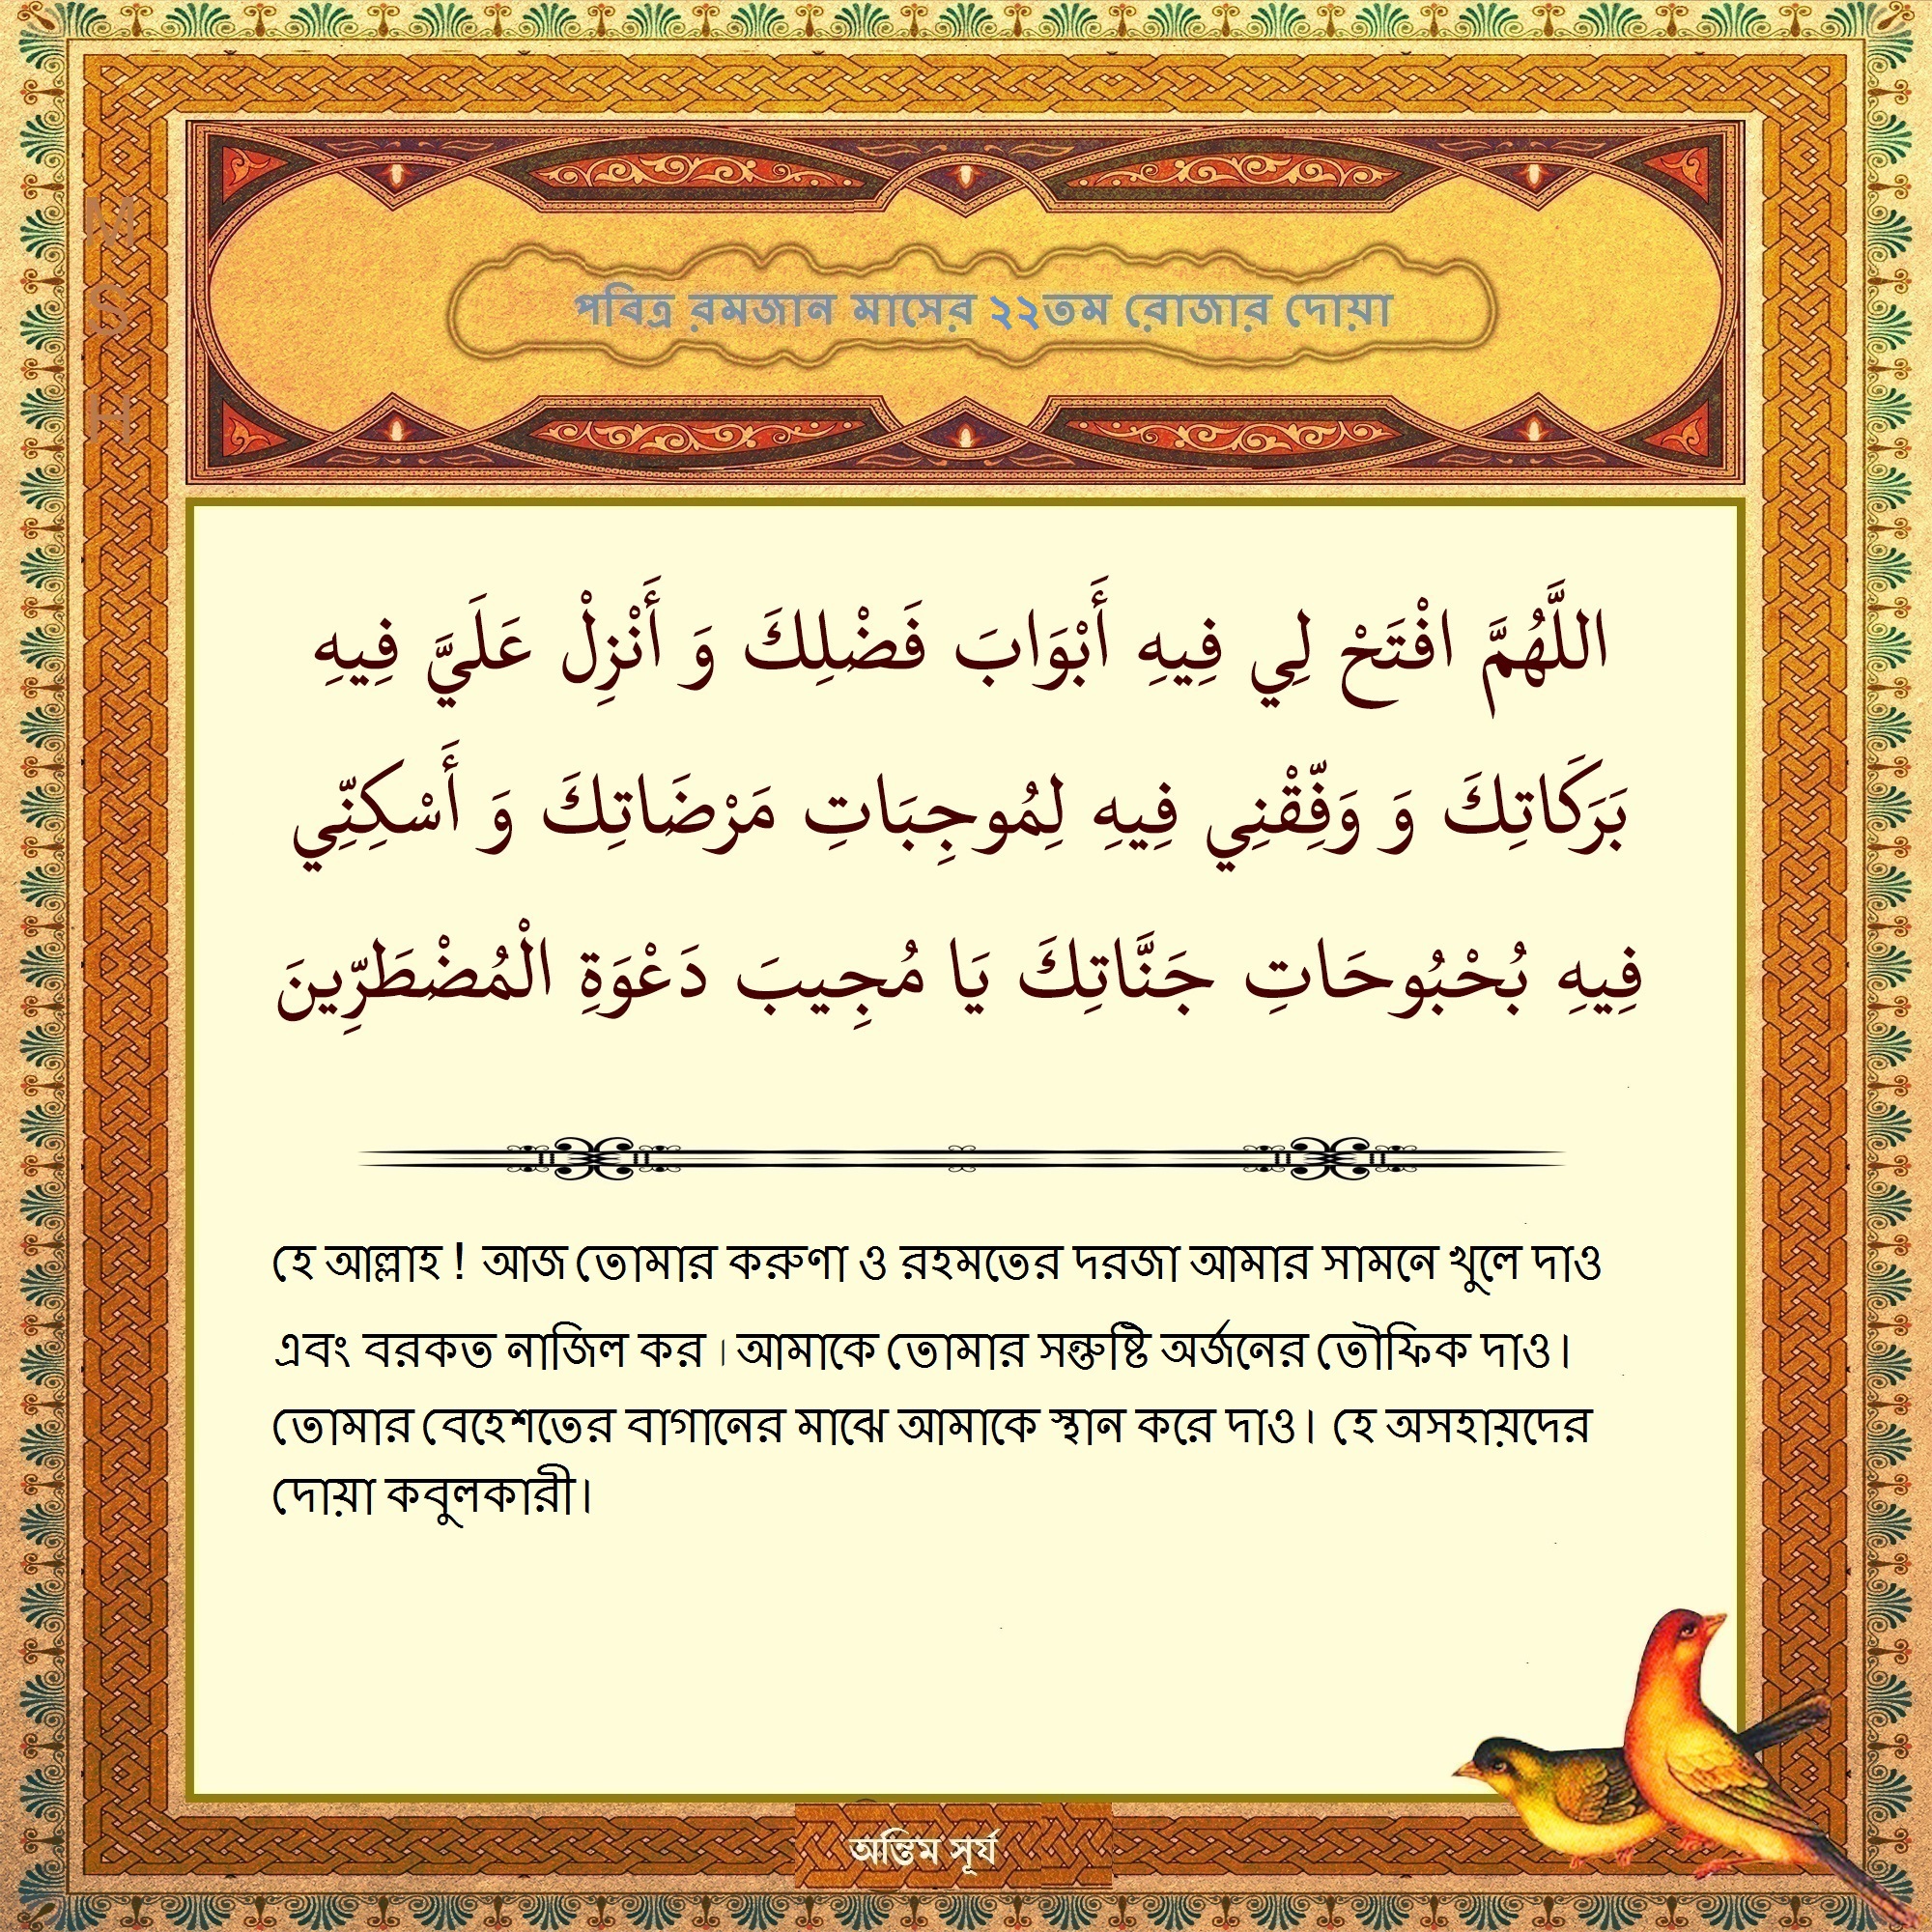 M
S
H
পবিত্র রমজান মাসের ২২তম রোজার দোয়া
اللَّهُمَّ افْتَحْ لِي فِيهِ أَبْوَابَ فَضْلِكَ وَ أَنْزِلْ عَلَيَّ فِيهِ
بَرَكَاتِكَ وَ وَفِّقْنِي فِيهِ لِمُوجِبَاتِ مَرْضَاتِكَ وَ أَسْكِنِّي
فِيهِ بُحْبُوحَاتِ جَنَّاتِكَ يَا مُجِيبَ دَعْوَةِ الْمُضْطَرِّينَ
হে আল্লাহ ! আজ তোমার করুণা ও রহমতের দরজা আমার সামনে খুলে দাও
এবং বরকত নাজিল কর । আমাকে তোমার সন্তুষ্টি অর্জনের তৌফিক দাও।
তোমার বেহেশতের বাগানের মাঝে আমাকে স্থান করে দাও। হে অসহায়দের
দোয়া কবুলকারী।
অন্তিম সূর্য